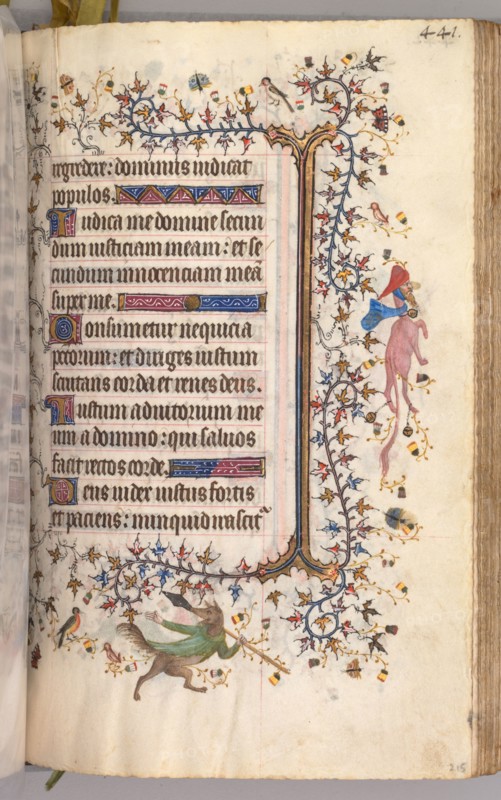 441.
regredere: dominus iudicat
populos.
Iudica me domine secun
dum iusticiam meam: et se
cundum innocenciam meā
super me.
Consumetur nequicia
pctorum: et diriges iustum
scrutans corda et renes deus.
Iustum adiutorium me
um a domino: qui saluos
facit rectos corde.
Deus iudex iustus fortis
et paciens: nunquid irascit᷑
215